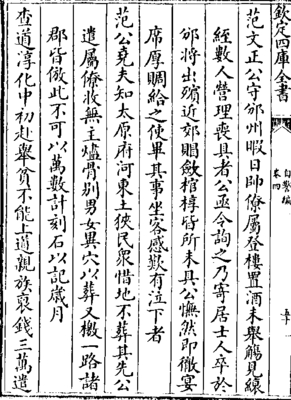 欽定四庫全書
自警編
卷四
范文正公守邠州暇日帥僚屬登樓置酒未舉觴見縗
絰數人營理喪具者公亟令詢之乃寄居士人卒於
邠將出殯近郊賵斂棺椁皆所未具公憮然即徹宴
席厚賙給之使畢其事坐客感歎有泣下者
范公堯夫知太原府河東土狹民衆惜地不葬其先公
遣屬僚收無主燼骨别男女異穴以葬又檄一路諸
郡皆倣此不可以萬數計刻石以記歲月
查道淳化中初赴舉貧不能上道親族裒錢三萬遺